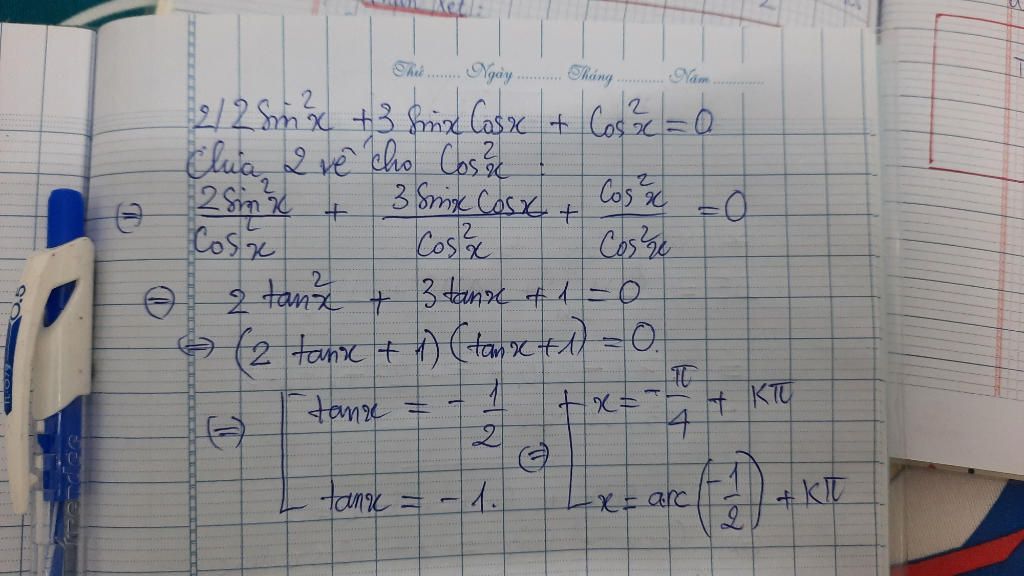 Thứ ........ Ngày ........... Tháng ........... Năm ............
2/ 2Sin²x + 3 Sinx Cosx + Cos²x = 0
Chia 2 vế cho Cos²x :
(=) 2Sin²x/Cos²x + 3 Sinx Cosx/Cos²x + Cos²x/Cos²x = 0
(=) 2 tan²x + 3 tanx + 1 = 0
⇔ (2 tanx + 1) (tanx + 1) = 0.
(=) [ tanx = - 1/2 (=) [ x = - π/4 + Kπ
tanx = - 1. x = arc(-1/2) + Kπ
0.5